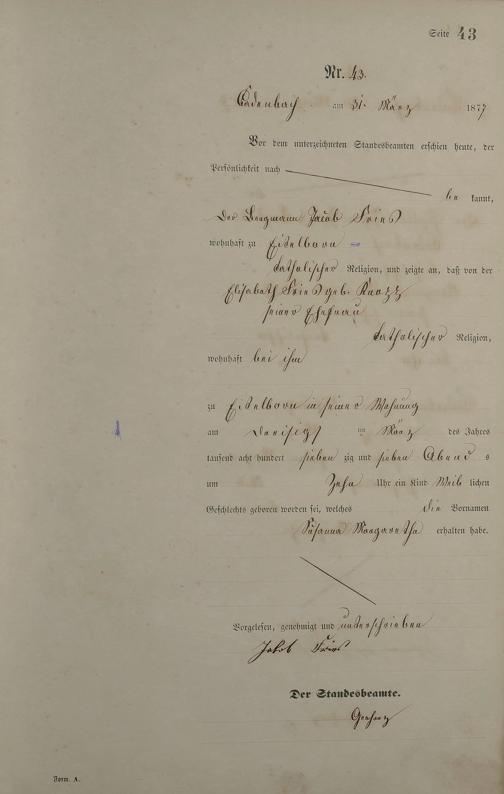 Seite 43
Nr. 43.
Cadenbach am 31. März 1877
Vor dem unterzeichneten Standesbeamten erschien heute, der
Persönlichkeit nach
be kannt,
der Bergmann Jacob Fries
wohnhaft zu Eitelborn
katholischer Religion, und zeigte an, daß von der
Elisabeth Fries geb. Knozz
seiner Ehefrau
katholischer Religion,
wohnhaft bei ihm
zu Eitelborn in seiner Wohnung
am dreißigst im März des Jahres
tausend acht hundert sieben zig und sieben Abend s
um Zehn Uhr ein Kind Weib lichen
Geschlechts geboren worden sei, welches die Vornamen
Susanna Margaretha erhalten habe.
Vorgelesen, genehmigt und unterschrieben
Jakob Fries
Der Standesbeamte.
Form. A.